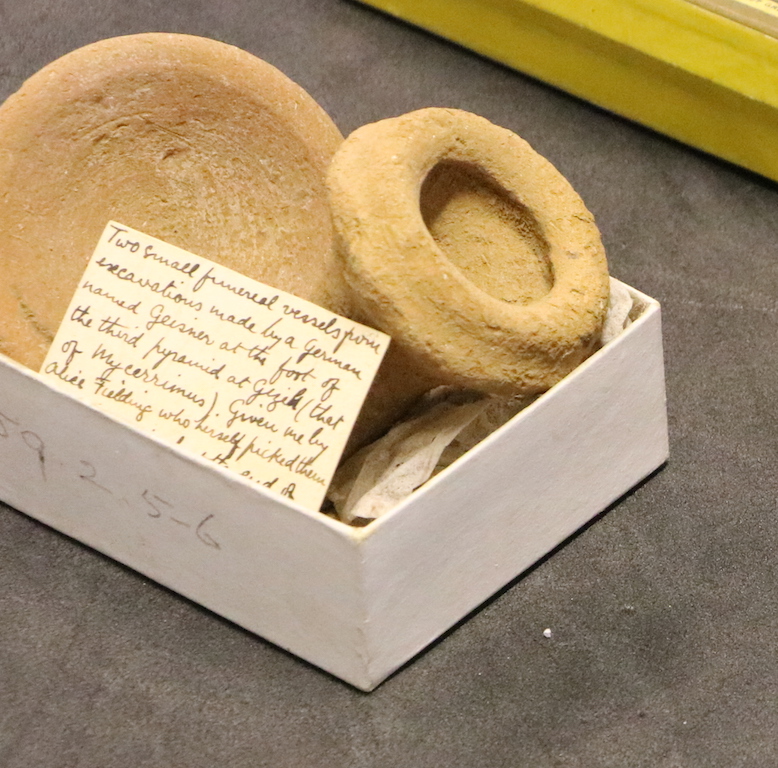 Two small funereal vessels from
excavations made by a German
named Geisner at the foot of
the third pyramid at Gizeh (that
of Mycerrimus) Given me by
Alice Fielding who herself picked them
and of
59.2.5-6